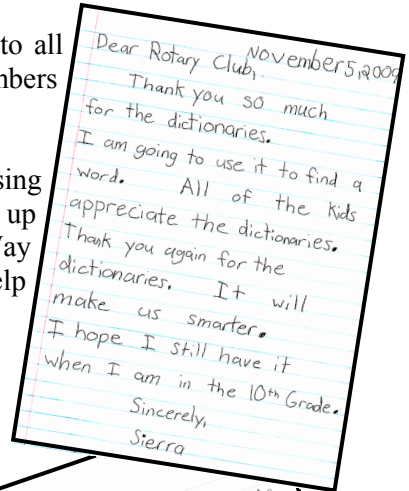 to all
mbers
sing
up
Way
elp
November 5, 2009
Dear Rotary Club,
Thank you so much
for the dictionaries.
I am going to use it to find a
word. All of the kids
appreciate the dictionaries.
Thank you again for the
dictionaries. It will
make us smarter.
I hope I still have it
when I am in the 10th Grade.
Sincerely,
Sierra